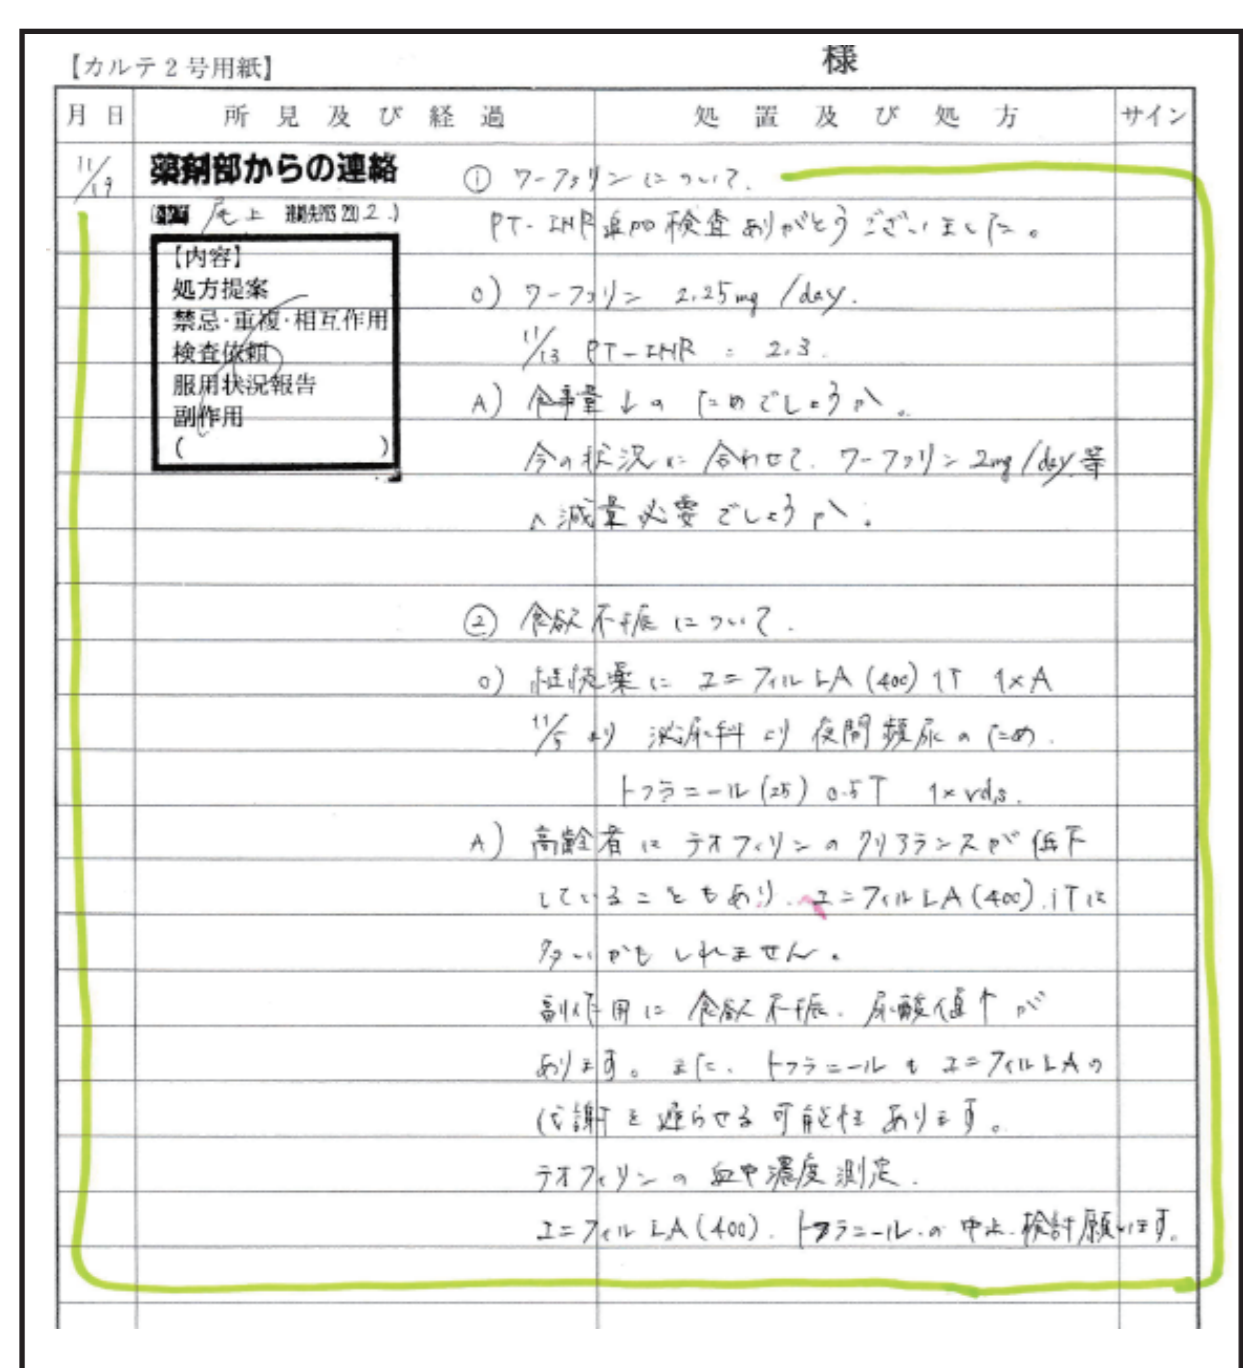 【カルテ2号用紙】 様
月日 所見及び経過 処置及び処方 サイン
11/19 薬剤部からの連絡
尾上 連絡先PHS 2202.)
【内容】
処方提案
禁忌・重複・相互作用
検査依頼
服用状況報告
副作用
( )
① ワーファリンについて.
PT-INR追加検査ありがとうございました。
O) ワーファリン 2.25mg/day.
11/13 PT-INR : 2.3.
A) 食事量↓のためでしょうか。
今の状況に合わせて、ワーファリン2mg/day等
へ減量必要でしょうか。
② 食欲不振について.
O) 性状薬に ユニフィルLA(400) 1T 1×A
11/5より 泌尿科より夜間頻尿のため.
トフラニール(25) 0.5T 1×vds.
A) 高齢者にテオフィリンのクリアランスが低下
していることもあり、ユニフィルLA(400).1Tは
多いかもしれません。
副作用に食欲不振、尿酸値↑が
あります。また、トフラニールもユニフィルLAの
代謝を遅らせる可能性あります。
テオフィリンの血中濃度測定.
ユニフィルLA(400)、トフラニール.の中止.検討願います。